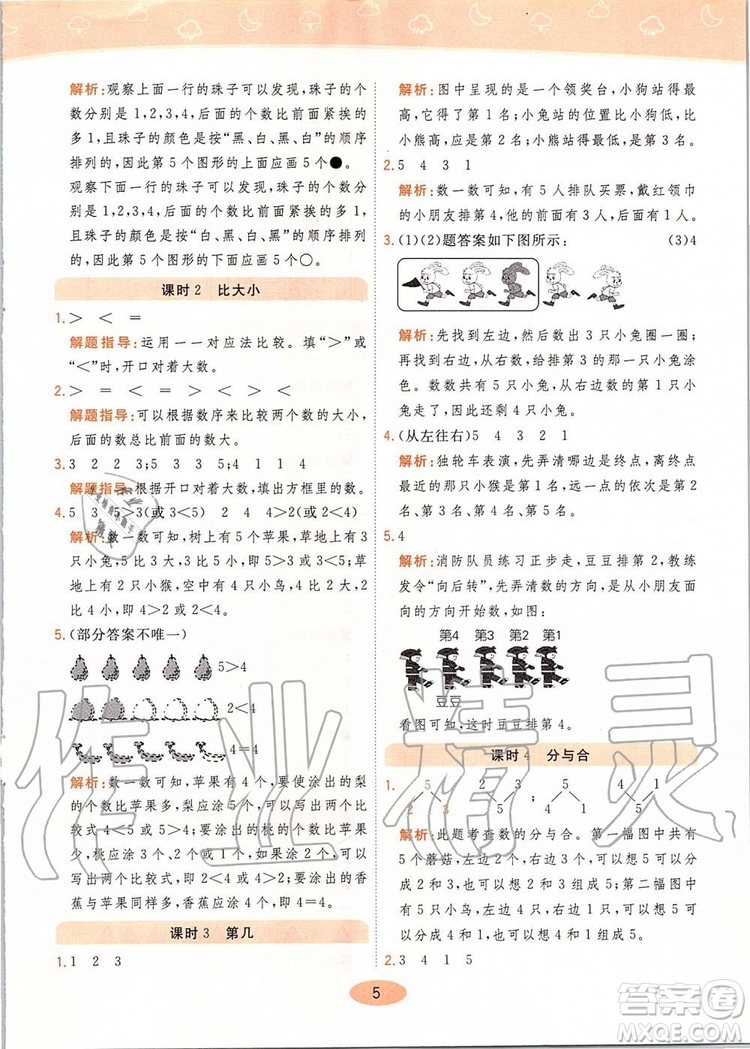 解析:观察上面一行的珠子可以发现,珠子的个
数分别是 1,2,3,4,后面的个数比前面紧挨的多
多 1,且珠子的颜色是按“黑、白、黑、白”的顺序
排列的,因此第 5 个图形的上面应画 5 个●。
观察下面一行的珠子可以发现,珠子的个数分
别是 1,2,3,4,后面的个数比前面紧挨的多 1,
且珠子的颜色是按“白、黑、白、黑”的顺序排列
的,因此第 5 个图形的下面应画 5 个○。
课时 2 比大小
1.> < =
解题指导:运用一一对应法比较。填“>”或
“<”时,开口对着大数。
2.> = < = > > < >
解题指导:可以根据数序来比较两个数的大小,
后面的数总比前面的数大。
3.3 2 2 3;5 4 3 5;1 1 4
解题指导:根据开口对着大数,填出方框里的数。
4.5 3 5>3(或 3<5) 2 4 4>2(或 2<4)
解析:数一数可知,树上有 5 个苹果,草地上有 3
只小兔,5 比 3 多,即 5>3 或 3<5。
草地上有 2 只小猴,空中有 4 只小鸟,4 比 2 大,
2 比 4 小,即 4>2 或 2<4。
5.(部分答案不唯一)
5>4
2<4
4=4
解析:数一数可知,苹果有 4 个,要使涂出的梨
的个数比苹果多,梨应涂 5 个,可以写出两个比
较式 4<5 或 5>4;要使涂出的桃的个数比苹果
少,桃应涂 1个、2个或3个,如果涂 2 个,可以
写出两个比较式,即 2<4 或 4>2;涂出的香
蕉与苹果同样多,香蕉应涂 4 个,即 4=4。
课时 3 第几
1.1 2 3
解析:图中呈现的是一个领奖台,小狗站得最
高,它得了第 1 名;小兔站的位置比小狗低,比
小熊高,应是第 2 名;小熊站得最低,是第 3 名。
2.5 4 3 1
解析:数一数可知,有 5 人排队买票,戴红领巾
的小朋友排第 4,他的前面有 3 人,后面有 1 人。
3.(1)(2)题答案如下图所示: (3)4
解析:先找到左边,然后数出 3 只小兔圈一圈;
再找到右边,数出从右边数的第 3 只小兔涂
色。数数一共有 5 只小兔,从右边数的第 1 只
小兔走了,因此还剩 4 只小兔。
4.(从左往右)5 4 3 2 1
解析:独轮车表演,先弄清哪边是终点,离终点
最近的是小猴,是第 1 名,远一点的依次是第 2
名、第 3 名、第 4 名、第 5 名。
5.4
解析:消防队员练习正步走,豆豆排第 2,教练
发令“向后转”,先弄清数的方向,是从小朋友面
向的方向开始数,如图:
第4 第3 第2 第1
豆豆
看图可知,这时豆豆排第 4。
课时 4 分与合
1. 5 5 5 4 5 1
2 3 2 3 ; 5 5
解析:此题考查数的分与合。第一幅图中共有
5 个蘑菇,左边 2 个,右边 3 个,可以想 5 可以分
成 2 和 3,也可以想 2 和 3 组成 5;第二幅图中
共有 5 只兔,左边 4 只,右边 1 只,可以想 5 可
以分成 4 和 1,也可以想 4 和 1 组成 5。
2.3 4 1 5
5
作业精灵
答案圈
MXQE.COM